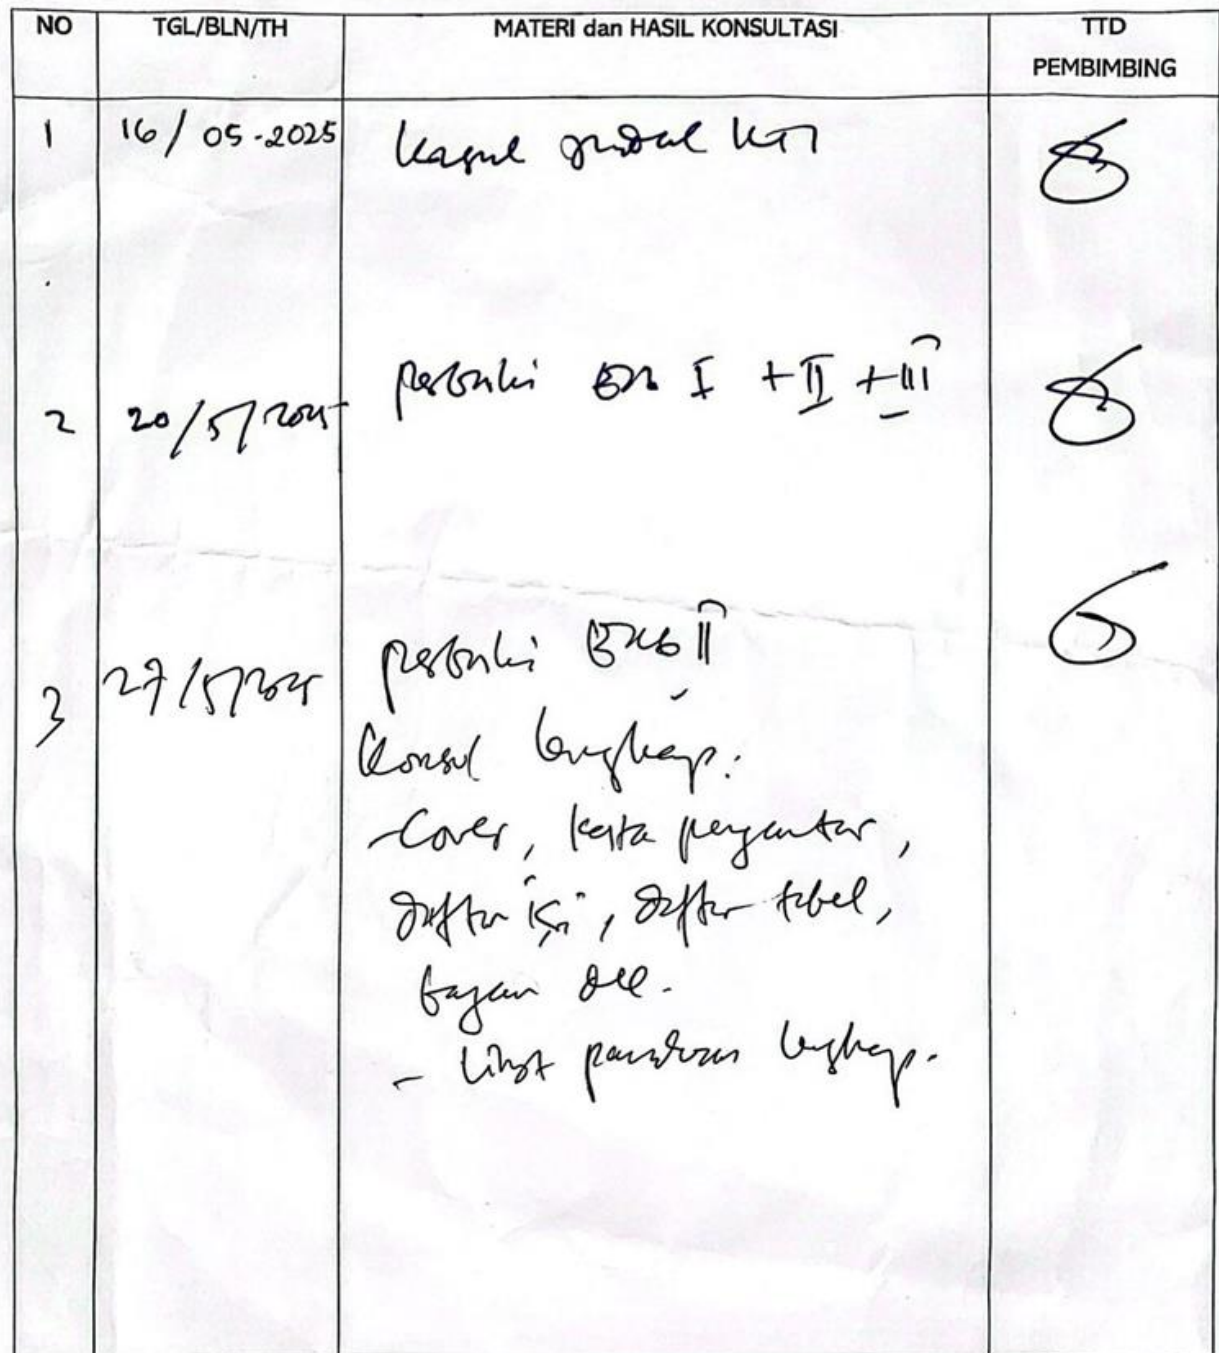 NO TGL/BLN/TH MATERI dan HASIL KONSULTASI TTD
PEMBIMBING
1 16/05-2025 judul KTI
2 20/5/2025 perbaiki Bab I + II + III
3 27/5/2025 perbaiki Bab II
Konsul lengkap:
- Cover, kata pengantar,
daftar isi, daftar tabel,
bagan dll.
- Lihat panduan lengkap.